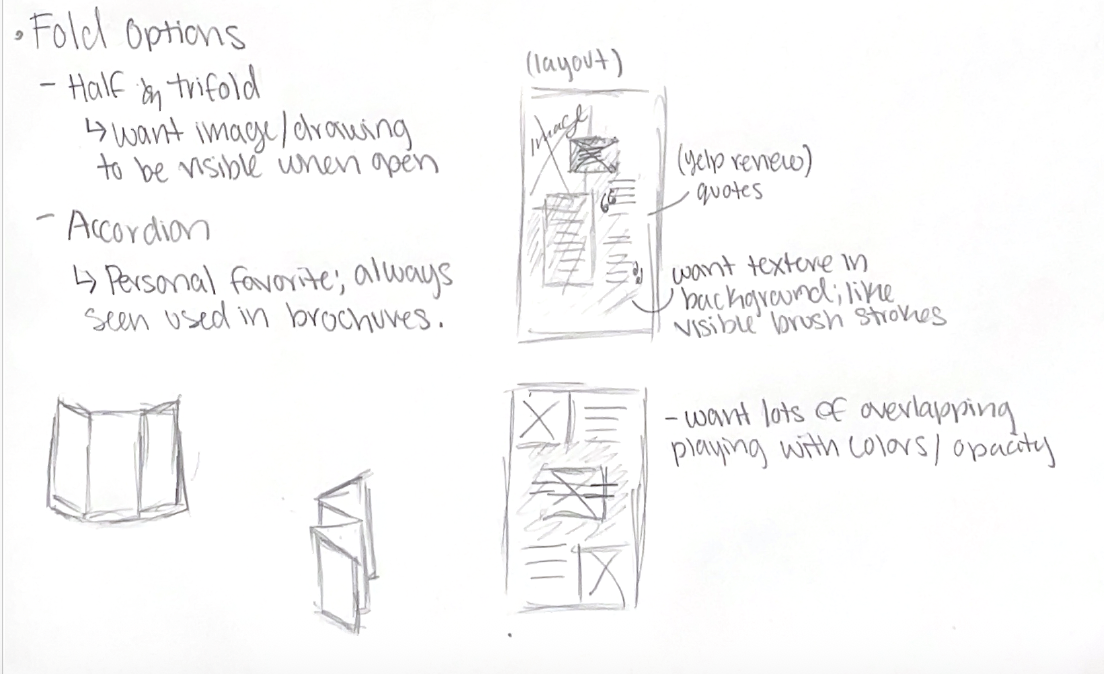 • Fold Options
- Half & trifold
↳ want image/drawing
to be visible when open
- Accordian
↳ Personal favorite; always
seen used in brochures.
(layout)
image
(yelp review)
quotes
want texture in
background; like
visible brush strokes
- want lots of overlapping
playing with colors/opacity